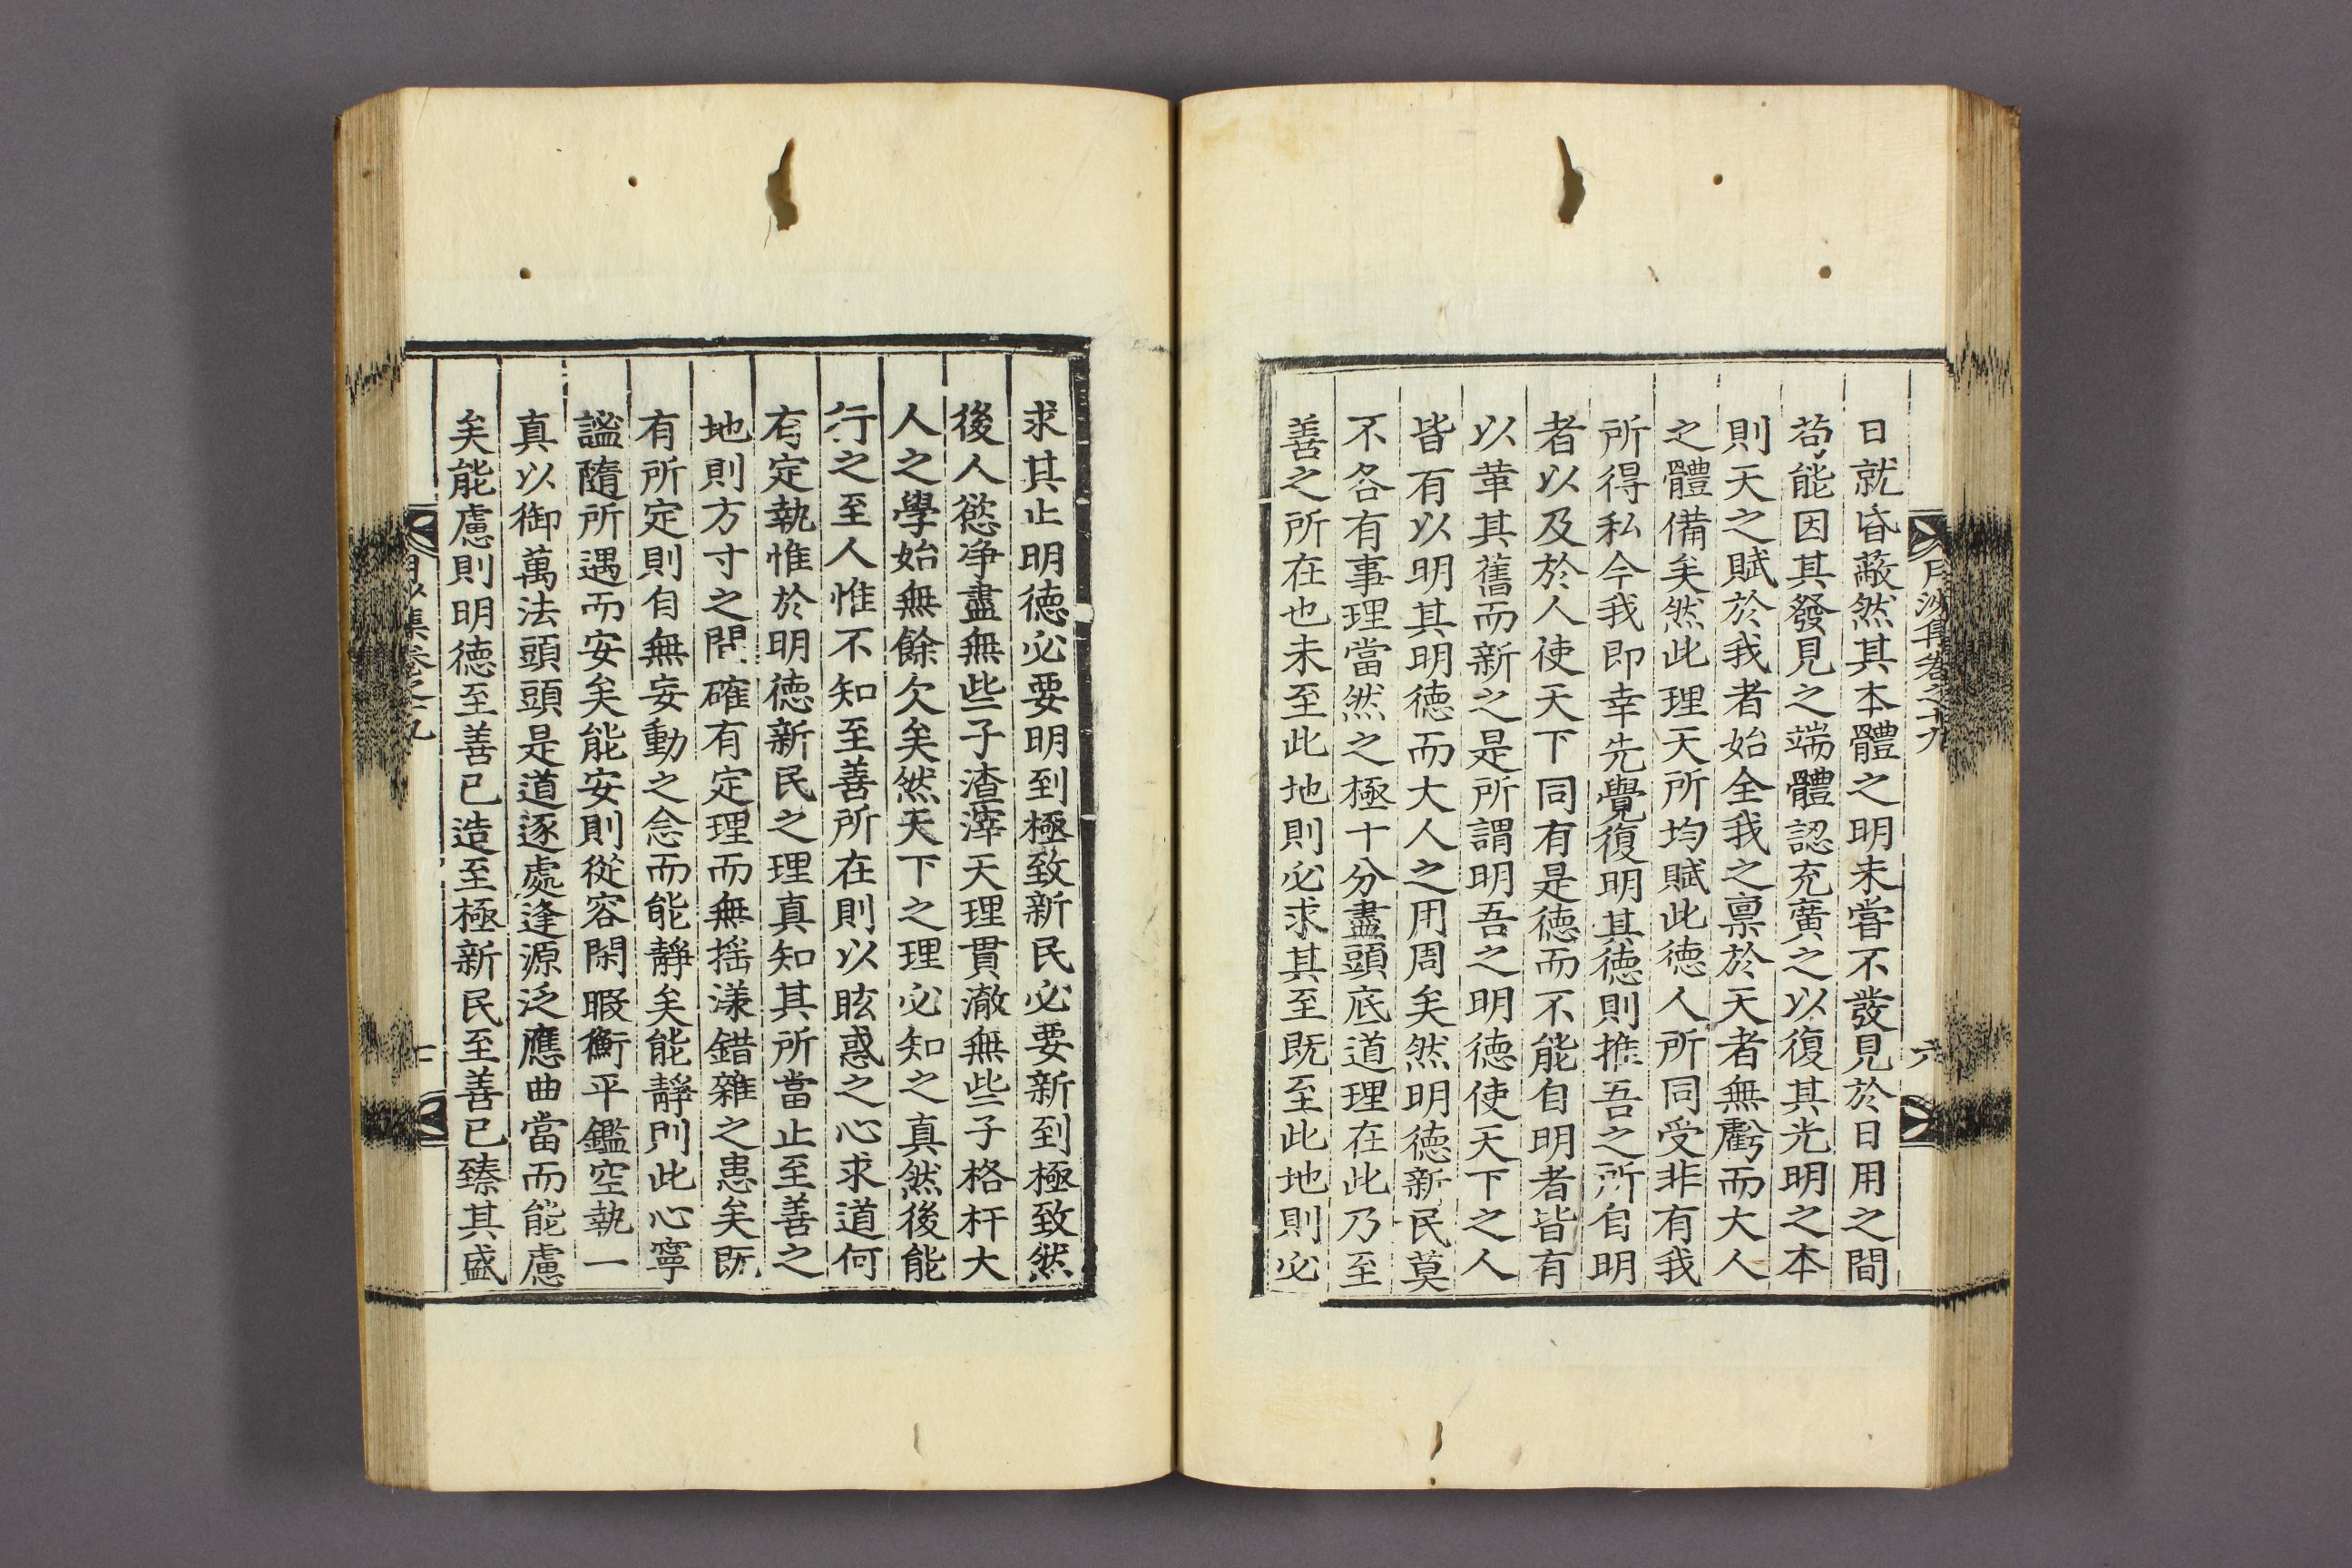 月沙集卷之十九
六
日就昏蔽然其本體之明未嘗不發見於日用之間
苟能因其發見之端體認充廣之以復其光明之本
則天之賦於我者始全我之禀於天者無虧而大人
之體備矣然此理天所均賦此德人所同受非有我
所得私今我即幸先覺復明其德則推吾之所自明
者以及於人使天下同有是德而不能自明者皆有
以革其舊而新之是所謂明吾之明德使天下之人
皆有以明其明德而大人之用周矣然明德新民莫
不各有事理當然之極十分盡頭底道理在此乃至
善之所在也未至此地則必求其至既至此地則必
求其止明德必要明到極致新民必要新到極致然
後人慾净盡無些子渣滓天理貫澈無些子格杆大
人之學始無餘欠矣然天下之理必知之真然後能
行之至人惟不知至善所在則以眩惑之心求道何
有定執惟於明德新民之理真知其所當止至善之
地則方寸之間確有定理而無搖漾錯雜之患矣既
有所定則自無妄動之念而能靜矣能靜則此心寧
謐隨所遇而安矣能安則從容閑暇衡平鑑空執一
真以御萬法頭頭是道逐處逢源泛應曲當而能慮
矣能慮則明德至善已造至極新民至善已臻其盛
月沙集卷之十九
七